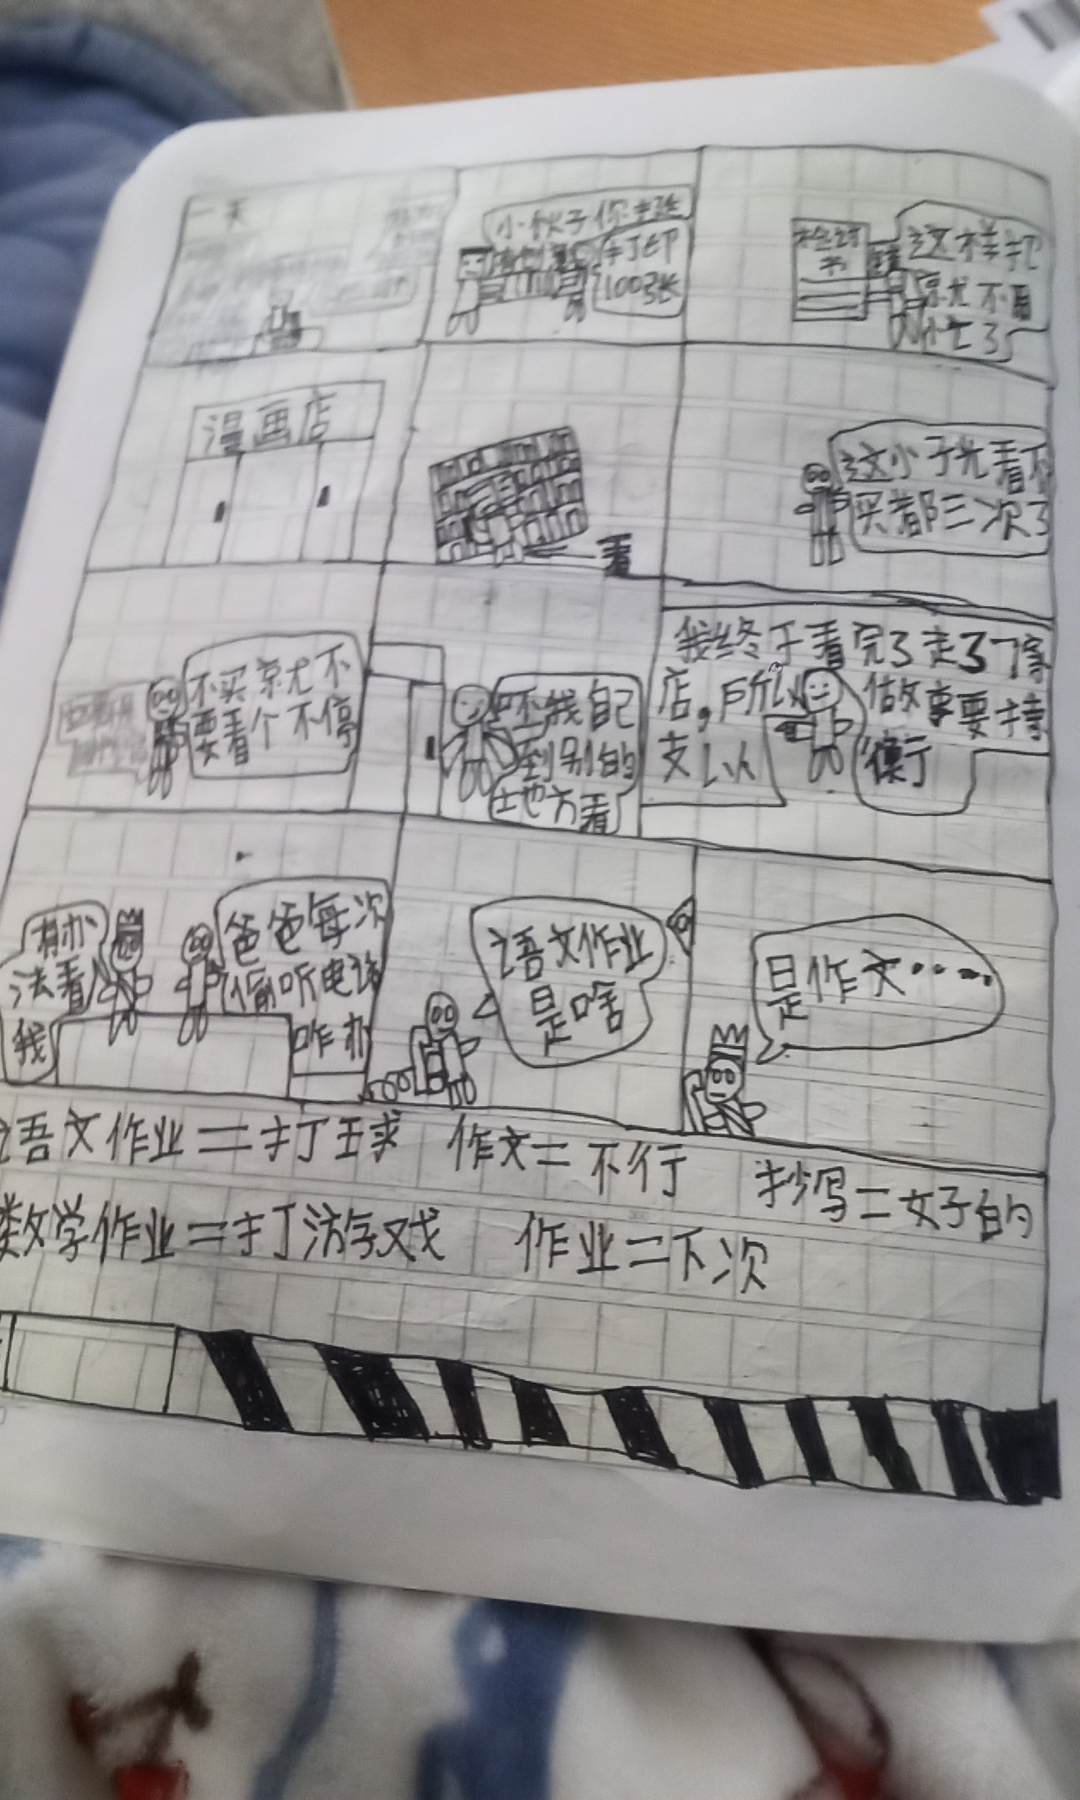 一天
小伙子你
打印
100张
检讨
书
这样我
就不用
忙了
漫画店
看
这小子光看不
买都三次了
不买就不
要看个不停
我自己
到别的
地方看
我终于看完了走了1家
店。所以
做事要持
支以
衡
有办
法看
我
爸爸每次
偷听电话
咋办
语文作业
是啥
是作文……
语文作业=打球 作文=不行 抄写=女子的
数学作业=打游戏 作业=下次